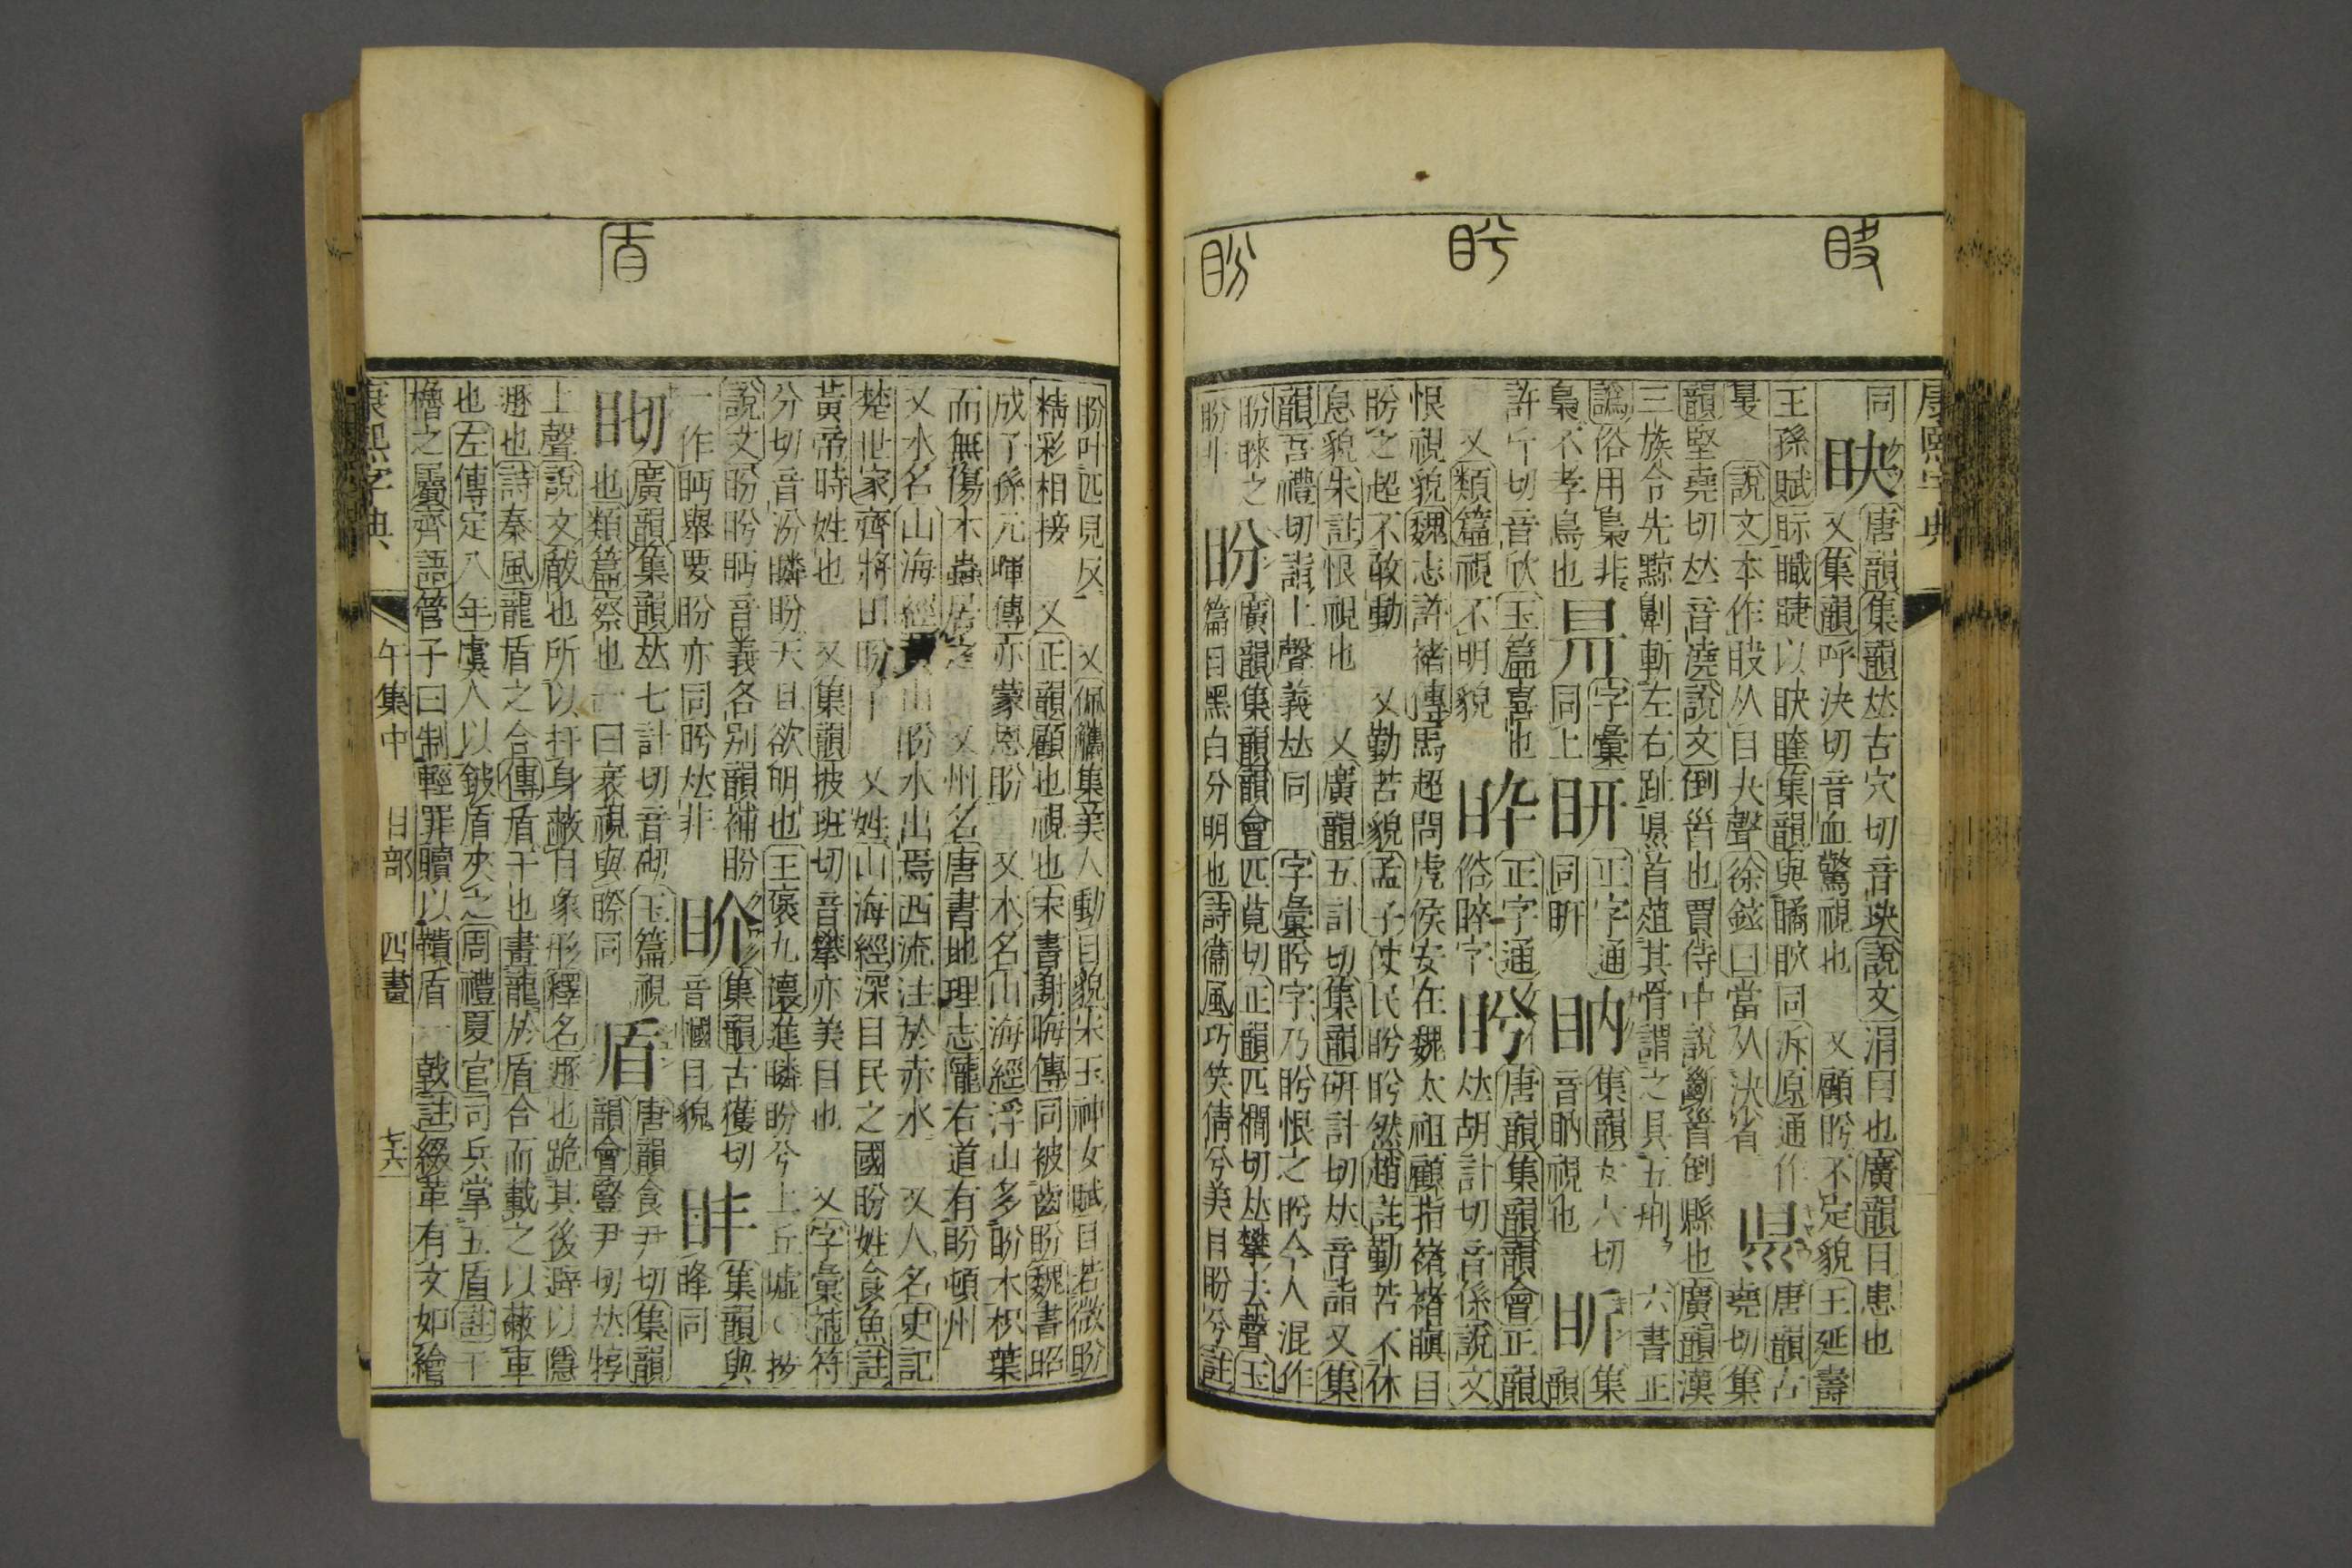 盻
盼
康熙字典
同 䀗 唐韻集韻𠀤古穴切音玦說文涓目也廣韻目患也
又集韻呼決切音血驚視也 又顧盻不定貌王延壽
王孫賦眎䁊睫以䀗睳集韻與瞲同 泝原通作 県 唐韻古
說文本作从目夬聲徐鉉曰當从決省 堯切集
韻堅堯切𠀤音澆說文倒𩠐也賈侍中說斷𩠐倒縣也廣韻漢
三族令先黥劓斬左右趾県首葅其骨謂之具五刑 六書正
譌俗用梟非 字彙 正字通 集韻女六切 昕 集
梟不孝鳥也 同上 同 音視也 韻
許斤切音欣玉篇喜也 正字通 盻 唐韻集韻韻會正韻
又類篇視不明貌 俗睟字 𠀤胡計切音係說文
恨視貌魏志許褚傳馬超問虎侯安在魏太祖顧指褚褚瞋目
盻之超不敢動 又勤苦貌孟子使民盻盻然趙註勤苦不休
息貌朱註恨視也 又廣韻五計切集韻研計切𠀤音詣又集
韻吾禮切詣上聲義𠀤同 字彙盻字乃盻恨之盻今人混作
盼睞之 盼 廣韻集韻韻會匹莧切正韻匹襉切𠀤攀去聲玉
盼非 篇目黑白分明也詩衞風巧笑倩兮美目盼兮註
盾
盼叶匹見反 又佩觿集美人動目貌宋玉神女賦目若微盼
精彩相接 又正韻顧也視也宋書謝晦傳同被齒盼魏書昭
成子孫元暉傳亦蒙恩盼 又木名山海經浮山多盼木枳葉
而無傷木蟲居之 又州名唐書地理志隴右道有盼頓州
又水名山海經黃山盼水出焉西流注於赤水 又人名史記
楚世家齊將田盼子 又姓山海經深目民之國盼姓食魚註
黃帝時姓也 又集韻披班切音攀亦美目也 又字彙補符
分切音汾瞵盼天日欲明也王褒九懷進瞵盼兮上丘墟○按
說文盼盻眄音義各別韻補盼 集韻古獲切 集韻與
一作眄舉要盼亦同盻𠀤非 音幗目貌 同
䀙 廣韻集韻𠀤七計切音砌玉篇視 盾 唐韻食尹切集韻
也類篇察也一曰衺視與䁃同 韻會豎尹切𠀤犉
上聲說文瞂也所以扞身蔽目象形釋名遯也跪其後避以隱
遯也詩秦風龍盾之合傳盾干也畫龍於盾合而載之以蔽車
也左傳定八年虞人以鈹盾夾之周禮夏官司兵掌五盾註干
櫓之屬齊語管子曰制輕罪贖以鞼盾一戟註綴革有文如繪
康熙字典 午集中 目部 四畫 七六